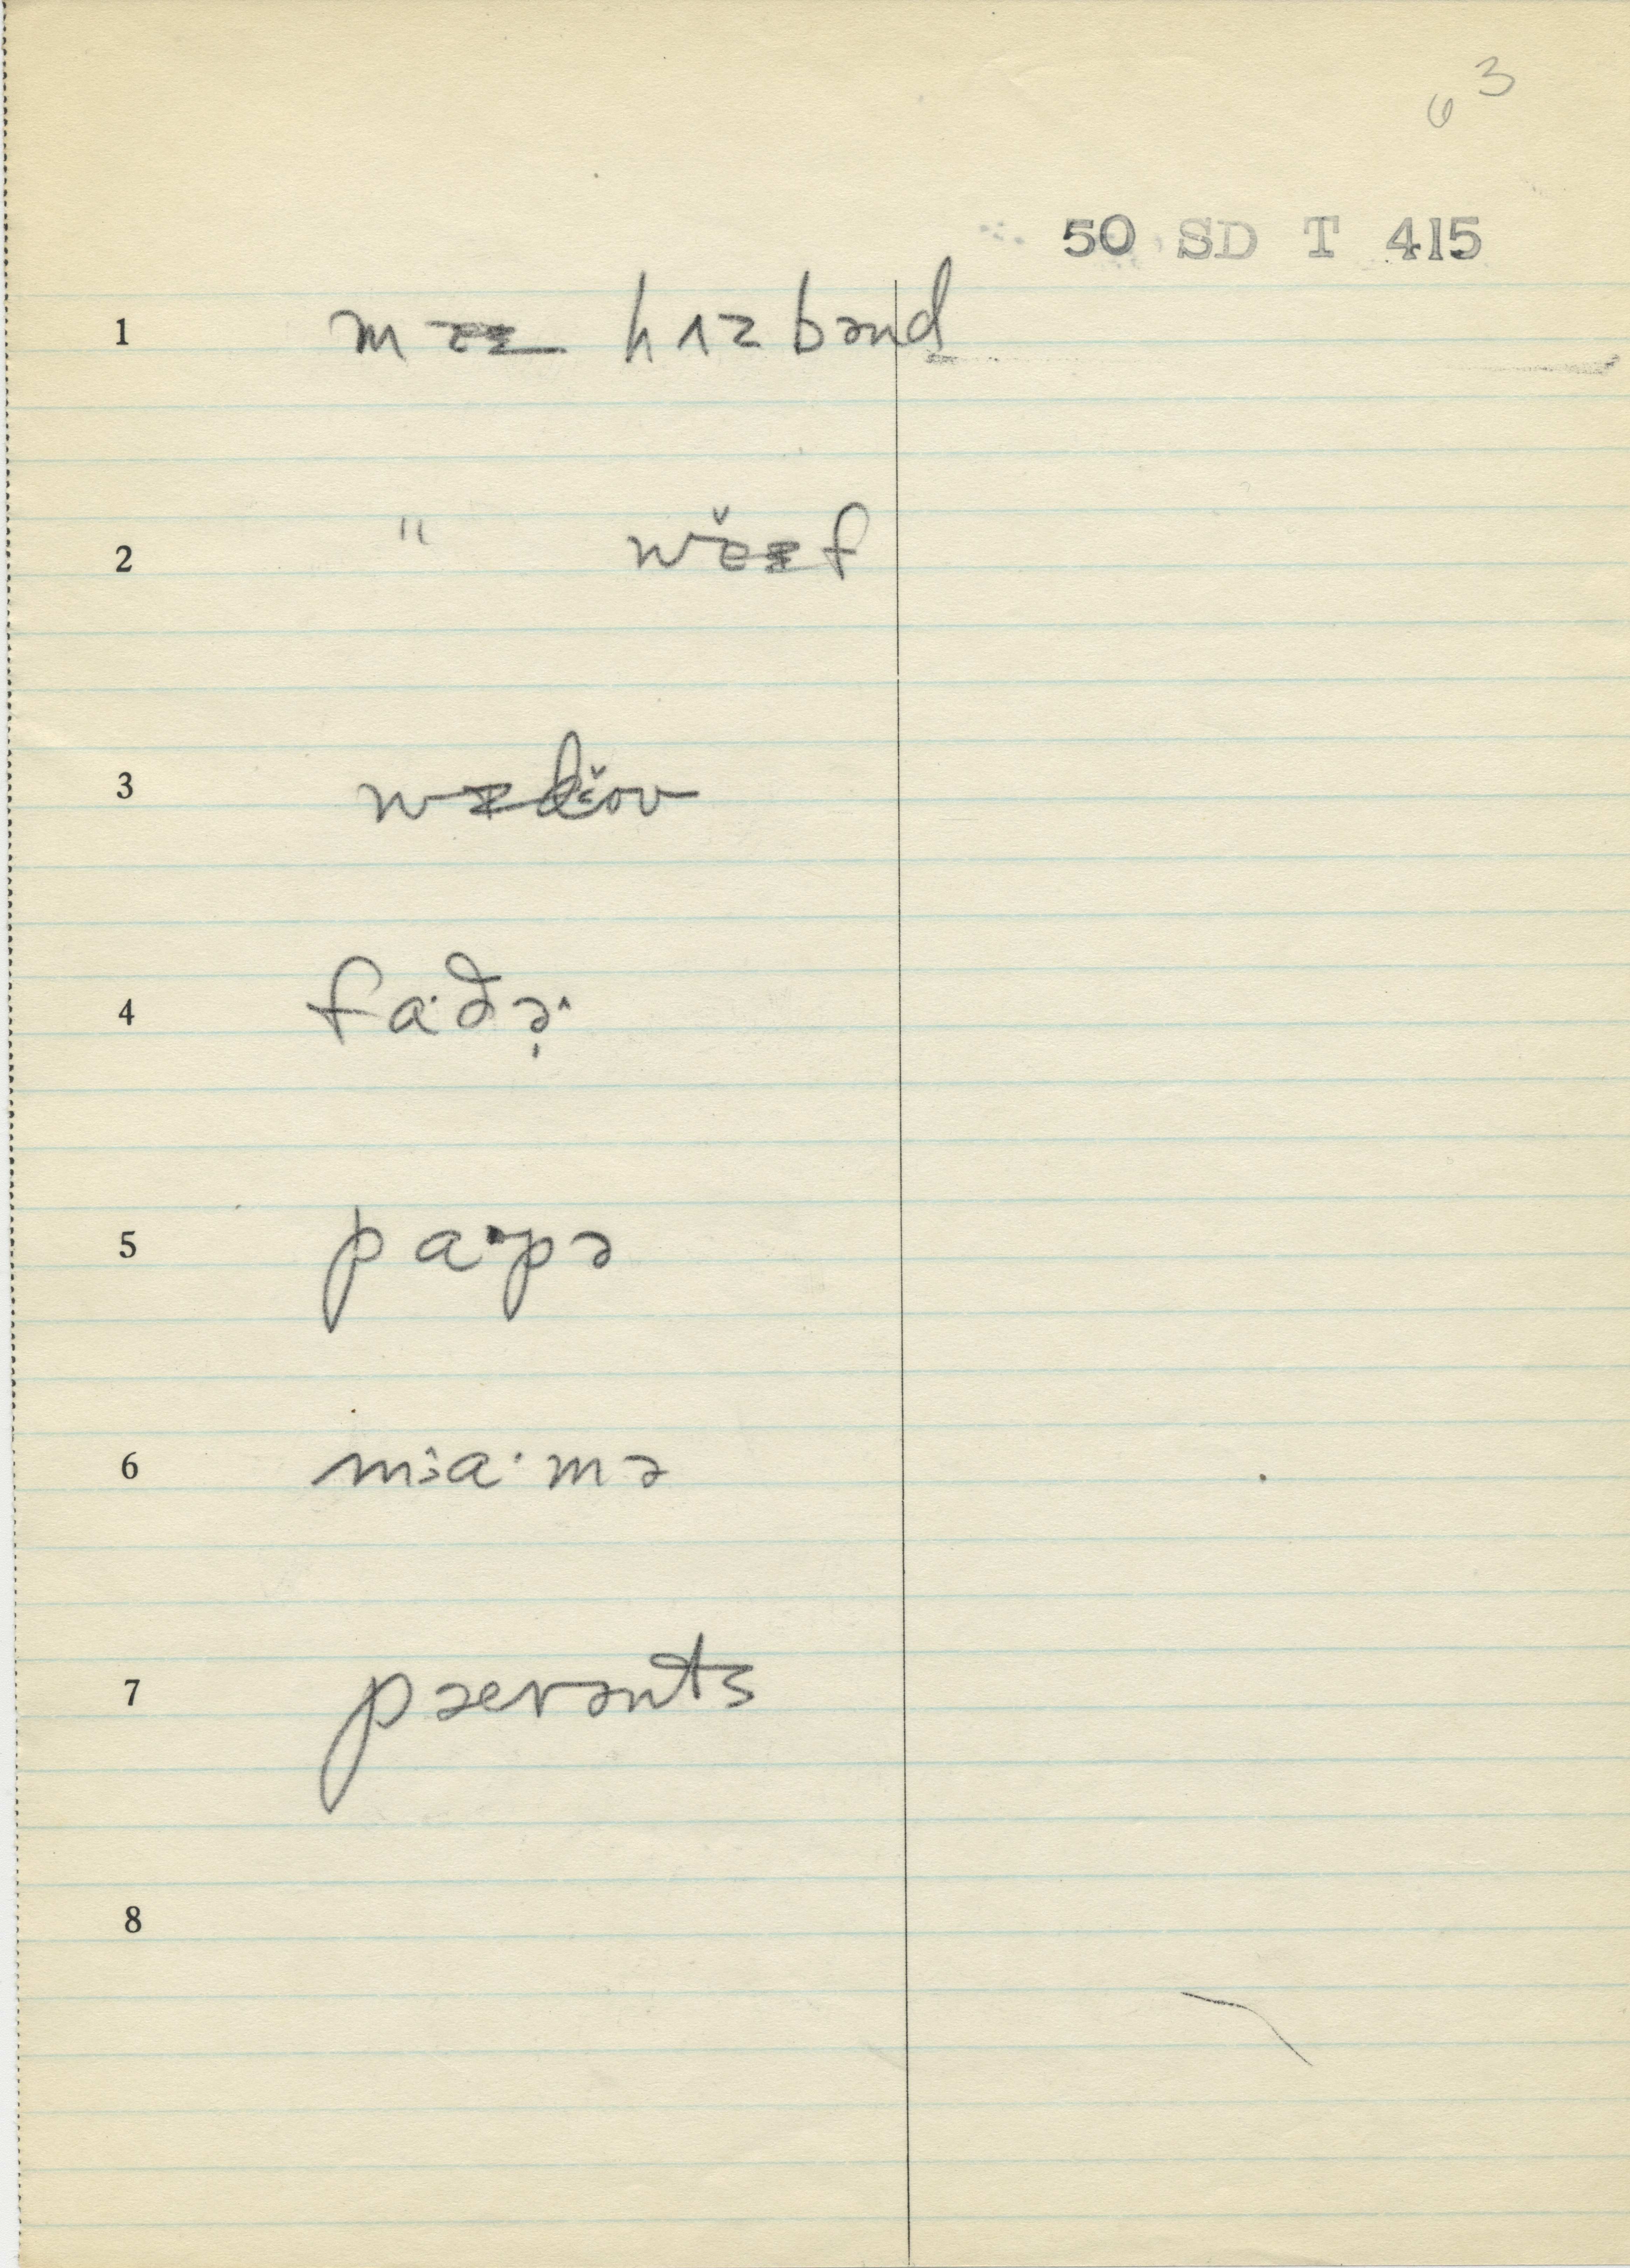 63
50 SD T 415
1 hʌzbənd
2 "
3
4 fa·ðə
5 pa·pə
6 ma·mə
7 pærənts
8